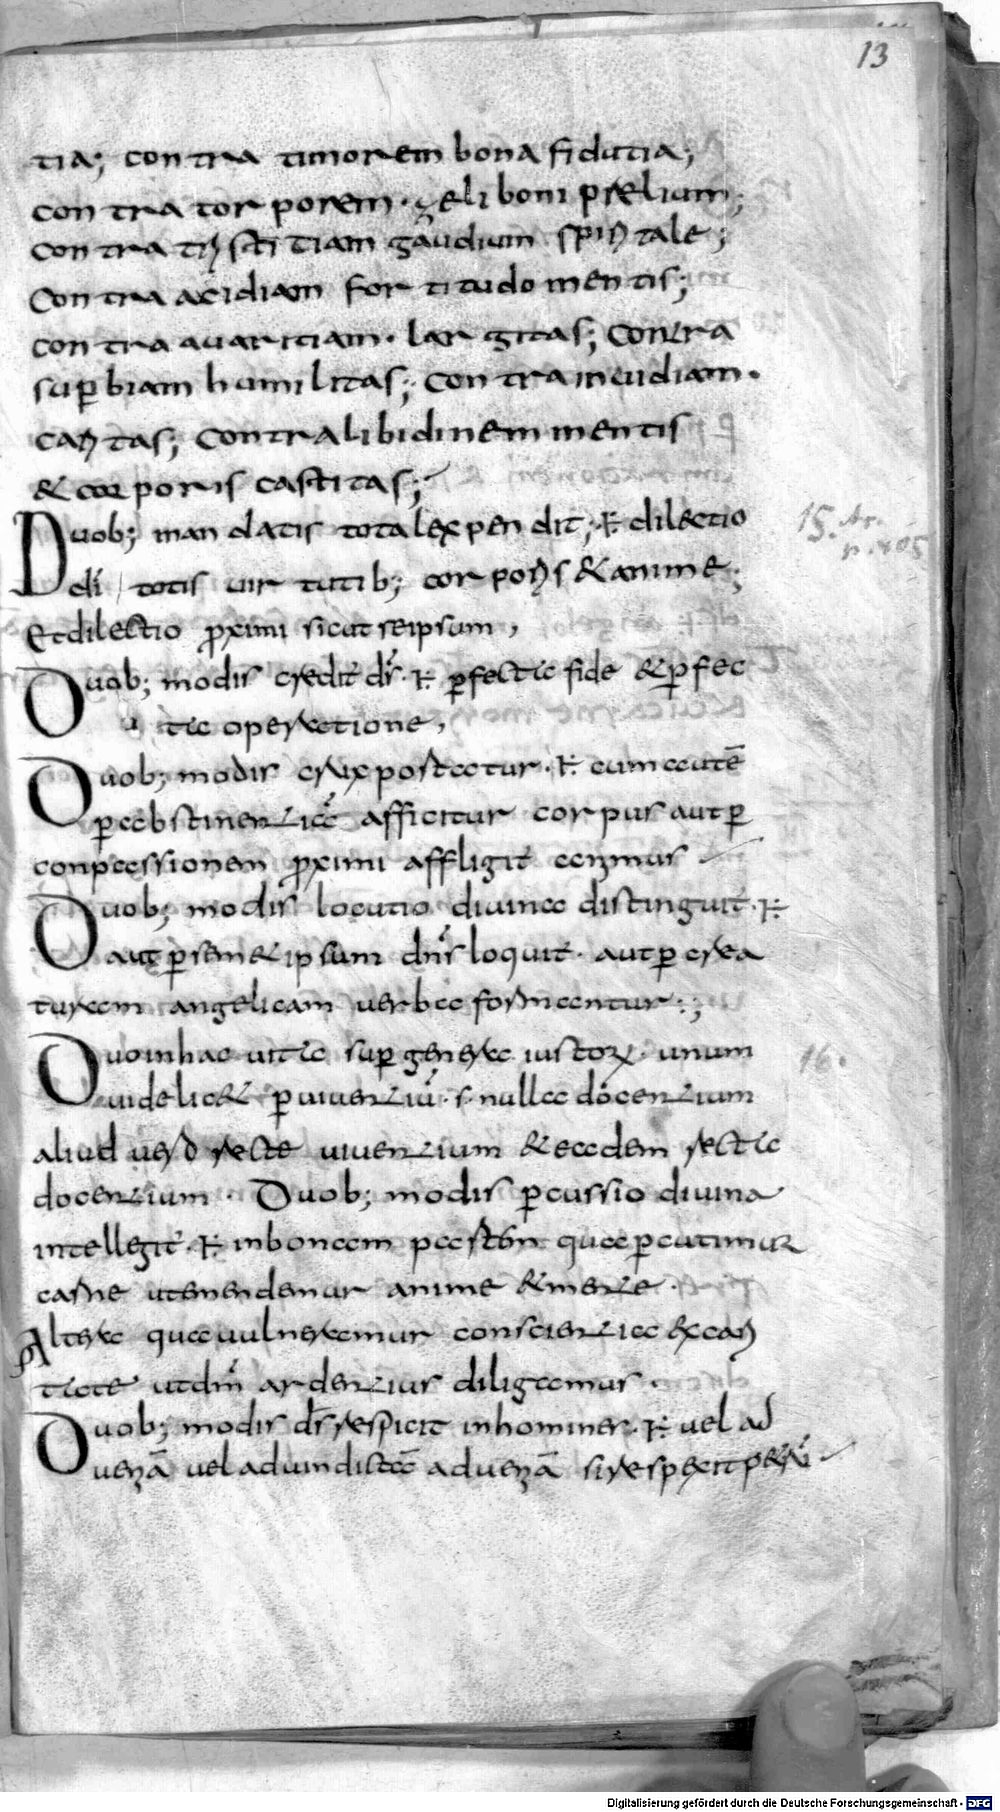 13
tia; contra timorem bona fidutia;
contra torporem. zeli boni prelium;
contra tristitiam gaudium spiritale;
Contra acidiam fortitudo mentis;
contra avaritiam. largitas; Contra
superbiam humilitas; Contra invidiam.
caritas; Contra libidinem mentis
& corporis castitas;
Duob; mandatis tota lex pendit; id÷ dilectio
di totis virtutib; corporis & anime;
Et dilectio proximi sicut seipsum,
Duob; modis credit dr. id÷ perfecta fide & perfec
ta operatione,
Duob; modis crux postatur. id÷ cum autē
p abstinentiā afficitur corpus aut p
conpassionem proximi affligit animus
Duob; modis locutio divina distinguit. id÷
aut p sem&ipsum dns loquit. aut p crea
turam angelicam verba formantur:;
Duo in hac vita super genera iustorum. unum
videlic& p viventiū. s. nulla docentium
aliud vero recte viventium & eadem recta
docentium. Duob; modis pcussio divina
intellegit. id÷ in bonam partem qua percutimur
carne ut emendemur anime & mente.
Altera qua vulneramur conscientia ex cari
tate ut dm ardentius diligamus.
Duob; modis ds respicit in homines. id÷ vel ad
veniā vel ad vindictā ad veniā si respexit petri
15. Ar.
16.
Digitalisierung gefördert durch die Deutsche Forschungsgemeinschaft - DFG